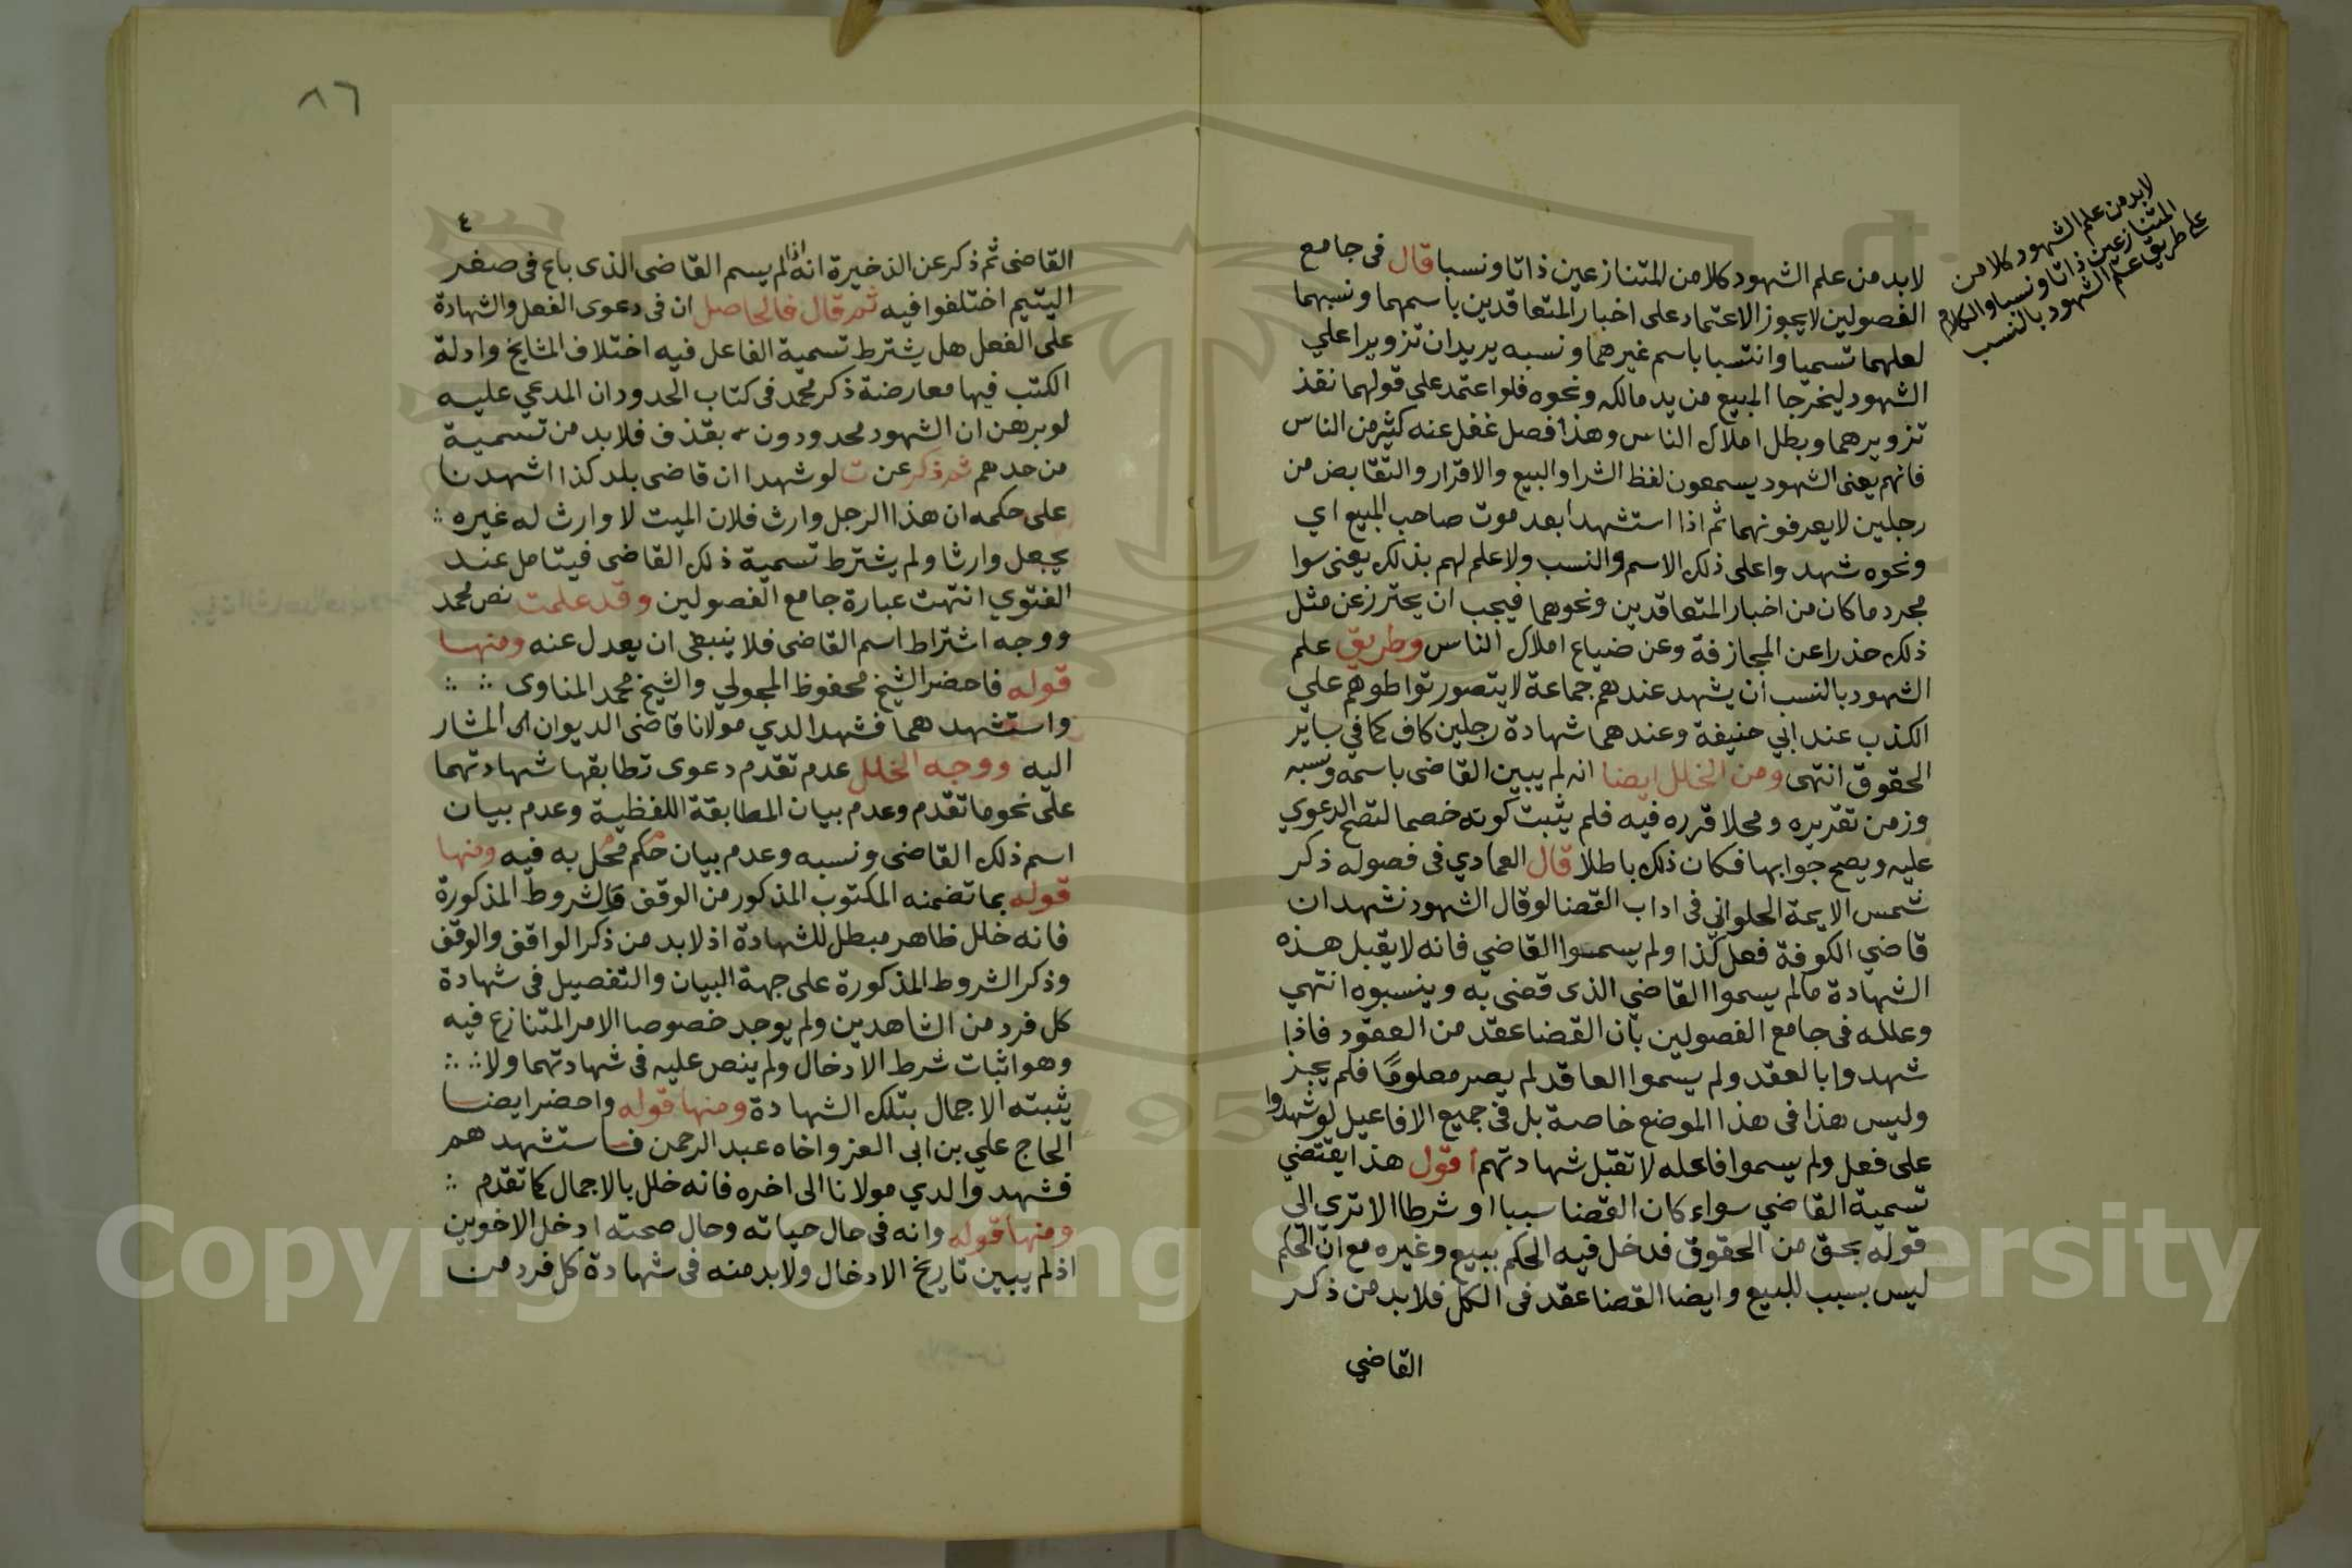 لابد من علم الشهود كلا من
المتنازعين ذاتا ونسبا والكلام
على طريق علم الشهود بالنسب
لابد من علم الشهود كلا من المتنازعين ذاتا ونسبا قال فى جامع
الفصولين لا يجوز الاعتماد على اخبار المتعاقدين باسمهما ونسبهما
لعلهما تسميا وانتسبا باسم غيرهما ونسبه يريدان تزويرا علي
الشهود ليخرجا المبيع من يد مالكه ونحوه فلو اعتمد على قولهما نفذ
تزويرهما وبطل املاك الناس وهذا فصل غفل عنه كثير من الناس
فانهم يعنى الشهود يسمعون لفظ الشرا والبيع والاقرار والتقابض من
رجلين لا يعرفونهما ثم اذا استشهدا بعد موت صاحب المبيع اي
ونحوه شهدوا على ذلك الاسم والنسب ولا علم لهم بذلك يعنى سوا
مجرد ما كان من اخبار المتعاقدين ونحوهما فيجب ان يحترز عن مثل
ذلك حذرا عن المجازفة وعن ضياع املاك الناس وطريق علم
الشهود بالنسب أن يشهد عندهم جماعة لا يتصور تواطوهم علي
الكذب عند ابي حنيفة وعندهما شهادة رجلين كاف كما في ساير
الحقوق انتهى ومن الخلل ايضا انه لم يبين القاضى باسمه ونسبه
وزمن تقديره ومحلا قرره فيه فلم يثبت كونه خصما لتصح الدعوي
عليه ويصح جوابها فكان ذلك باطلا قال العمادي فى فصوله ذكر
شمس الايمة الحلواني فى اداب القضا لو قال الشهود نشهد ان
قاضي الكوفة فعل كذا ولم يسموا القاضي فانه لا يقبل هذه
الشهادة ما لم يسموا القاضي الذى قضى به وينسبوه انتهي
وعلله فى جامع الفصولين بان القضا عقد من العقود فاذا
شهدوا بالعقد ولم يسموا العاقد لم يصر معلوما فلم يجز
وليس هذا فى هذا الموضع خاصة بل فى جميع الافاعيل لو شهدوا
على فعل ولم يسموا فاعله لا تقبل شهادتهم اقول هذا يقتضي
تسمية القاضي سواء كان القضا سببا او شرطا الا ترى الى
قوله بحق من الحقوق فدخل فيه الحكم ببيع وغيره مع ان الحكم
ليس بسبب للبيع وايضا القضا عقد فى الكل فلا بد من ذكر
القاضي
٨٦
٤
القاضى ثم ذكر عن الذخيرة انه اذا لم يسم القاضى الذى باع فى صغر
اليتيم اختلفوا فيه ثم قال فالحاصل ان فى دعوى الفعل والشهادة
على الفعل هل يشترط تسمية الفاعل فيه اختلاف المشايخ وادلة
الكتب فيها معارضة ذكر محمد فى كتاب الحدود ان المدعي عليه
لو برهن ان الشهود محدودون بقذف فلا بد من تسمية
من حدهم ثم ذكر عن ت لو شهدا ان قاضى بلد كذا اشهدنا
على حكمه ان هذا الرجل وارث فلان الميت لا وارث له غيره
يجعل وارثا ولم يشترط تسمية ذلك القاضى فيتامل عند
الفتوي انتهت عبارة جامع الفصولين وقد علمت نص محمد
ووجه اشتراط اسم القاضى فلا ينبغى ان يعدل عنه ومنها
قوله فاحضر الشيخ محفوظ المجولي والشيخ محمد المناوى
واستشهدهما فشهدا لدي مولانا قاضى الديوان الى المشار
اليه ووجه الخلل عدم تقدم دعوى تطابقها شهادتهما
على نحو ما تقدم وعدم بيان المطابقة اللفظية وعدم بيان
اسم ذلك القاضى ونسبه وعدم بيان حكم محل به فيه ومنها
قوله بما تضمنه المكتوب المذكور من الوقف والشروط المذكورة
فانه خلل ظاهر مبطل للشهادة اذ لابد من ذكر الواقف والوقف
وذكر الشروط المذكورة على جهة البيان والتفصيل فى شهادة
كل فرد من الشاهدين ولم يوجد خصوصا الامر المتنازع فيه
وهو اثبات شرط الادخال ولم ينص عليه فى شهادتهما ولا
يثبته الاجمال بتلك الشهادة ومنها قوله واحضر ايضا
الحاج علي بن ابى العز واخاه عبد الرحمن فاستشهدهم
فشهدوا لدي مولانا الى اخره فانه خلل بالاجمال كما تقدم
ومنها قوله وانه فى حال حياته وحال صحته ادخل الاخوين
اذ لم يبين تاريخ الادخال ولابد منه فى شهادة كل فرد من
Copyright © King Saud University